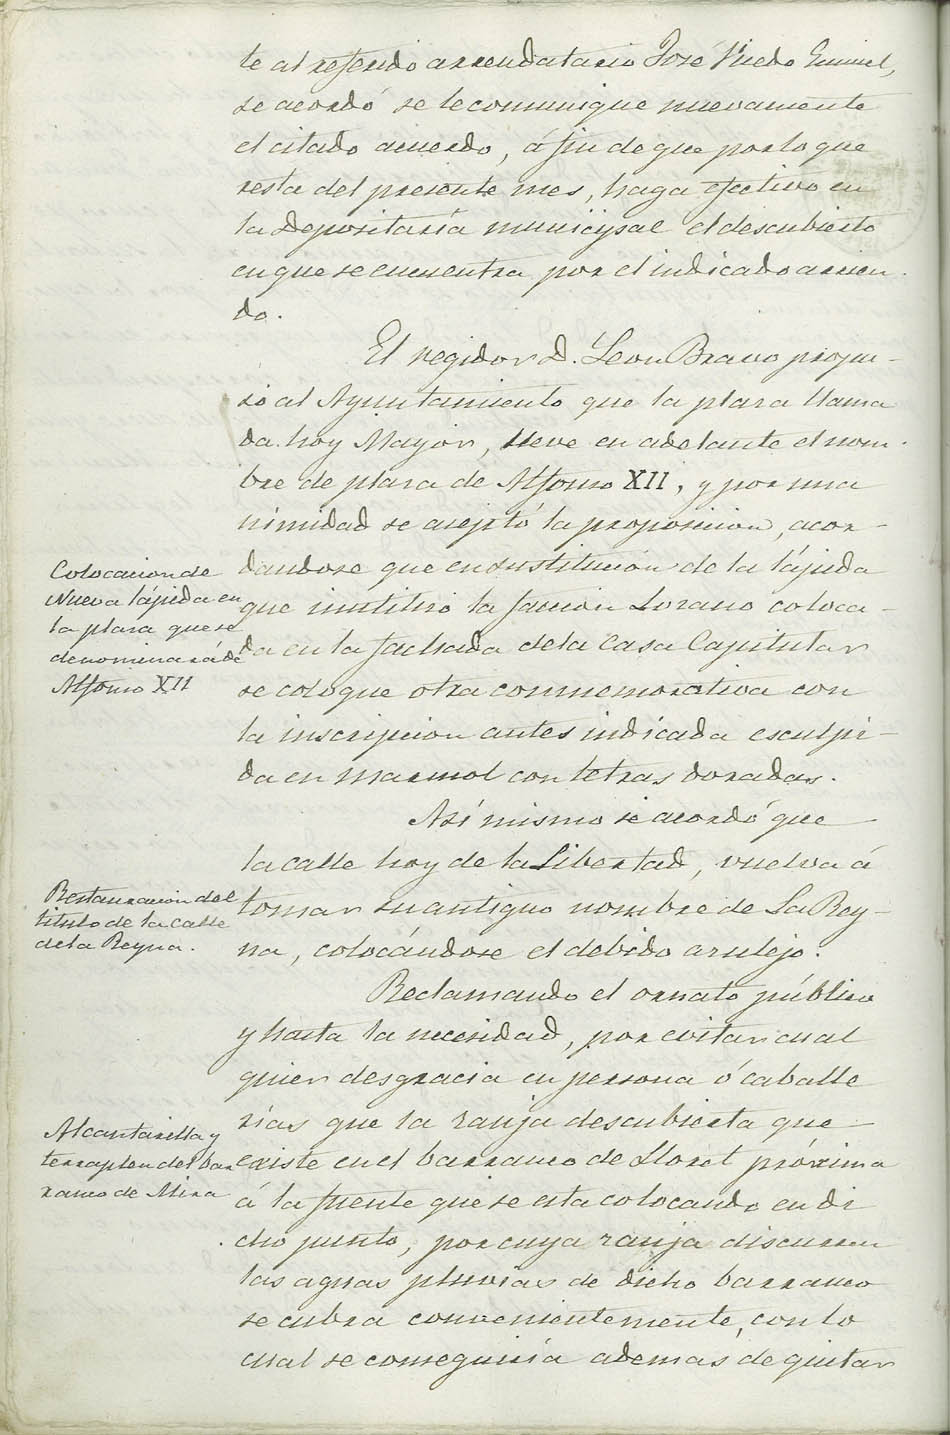 te al referido arrendatario José Riedo Guimel,
se acordó se le comunique nuevamente
el citado acuerdo, á fin de que por lo que
resta del presente mes, haga efectivo en
la Depositaría municipal el descubierto
en que se encuentra por el indicado arrien-
do.
El regidor D. Leon Bravo propu-
so al Ayuntamiento que la plaza llama
da hoy Mayor, lleve en adelante el nom-
bre de plaza de Alfonso XII, y por una
nimidad se aceptó la proposicion, acor-
dandose que en sustitución de la lápida
que inutilizó la faccion Lozano coloca-
da en la fachada de la Casa Capitular
se coloque otra conmemorativa con
la inscripcion antes indicada esculpi-
da en marmol con letras doradas.
Colocacion de
Nueva lápida en
la plaza que se
denominará de
Alfonso XII
Así mismo se acordó que
la calle hoy de la Libertad, vuelva á
tomar su antiguo nombre de La Rey-
na, colocándose el debido azulejo.
Restauracion del
titulo de la calle
de la Reyna.
Reclamando el ornato público
y hasta la necesidad, por evitar cual
quier desgracia en persona ó caballe
rías que la zanja descubierta que
existe en el barranco de Lloret próxima
á la fuente que se esta colocando en di
cho punto, por cuya zanja discurren
las aguas pluvias de dicho barranco
se cubra convenientemente, con lo
cual se conseguiria ademas de quitar
Alcantarilla y
terraplen del bar
ranco de Mira